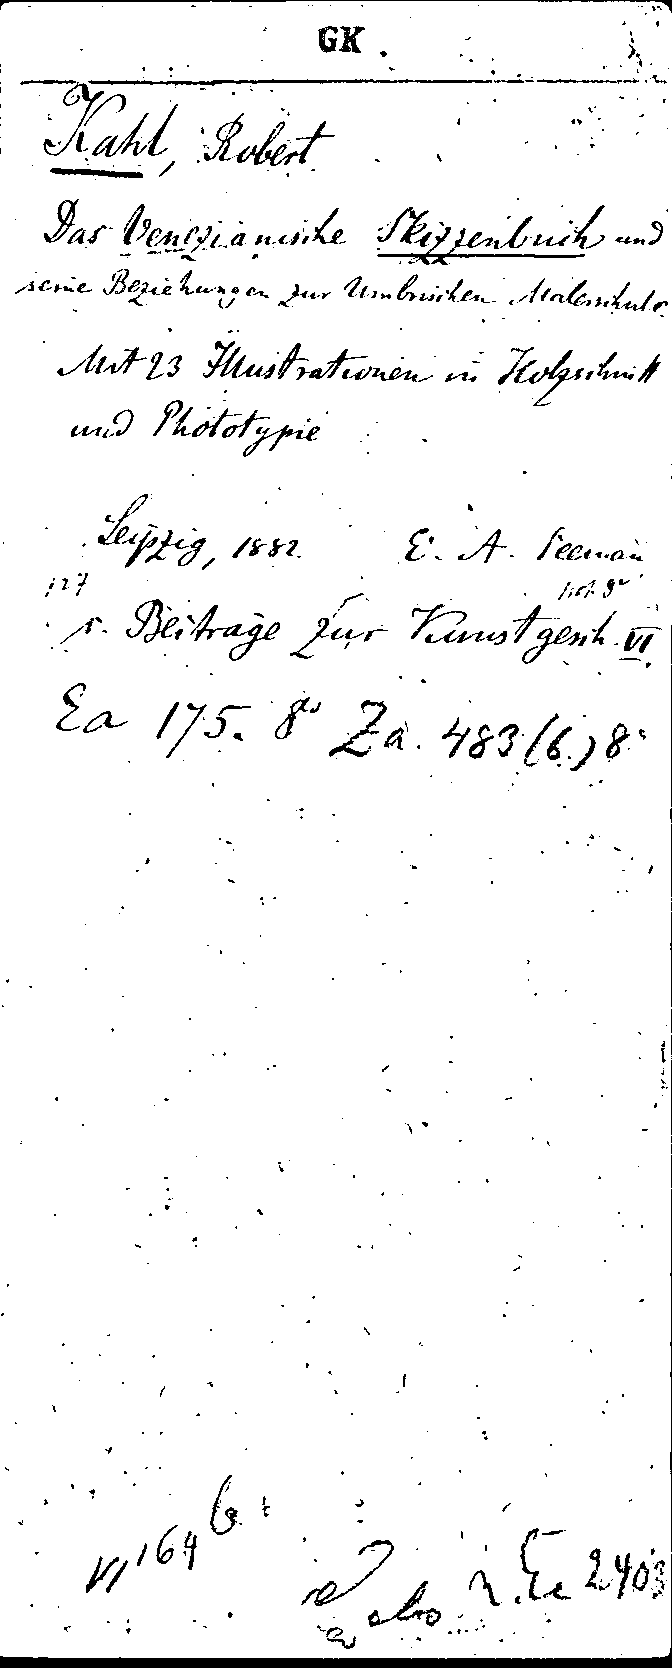 GK
Kahl, Robert
Das Venezianische Skizzenbuch und
seine Beziehungen zur Umbrischen Malerschule
Mit 23 Illustrationen in Holzschnitt
und Phototypie
Leipzig, 1882 E. A. Seeman
127
s. Beiträge zur Kunstgesch. VI
Ea 175. 8° Za. 483 (6.) 8°
VI 164 b
2403